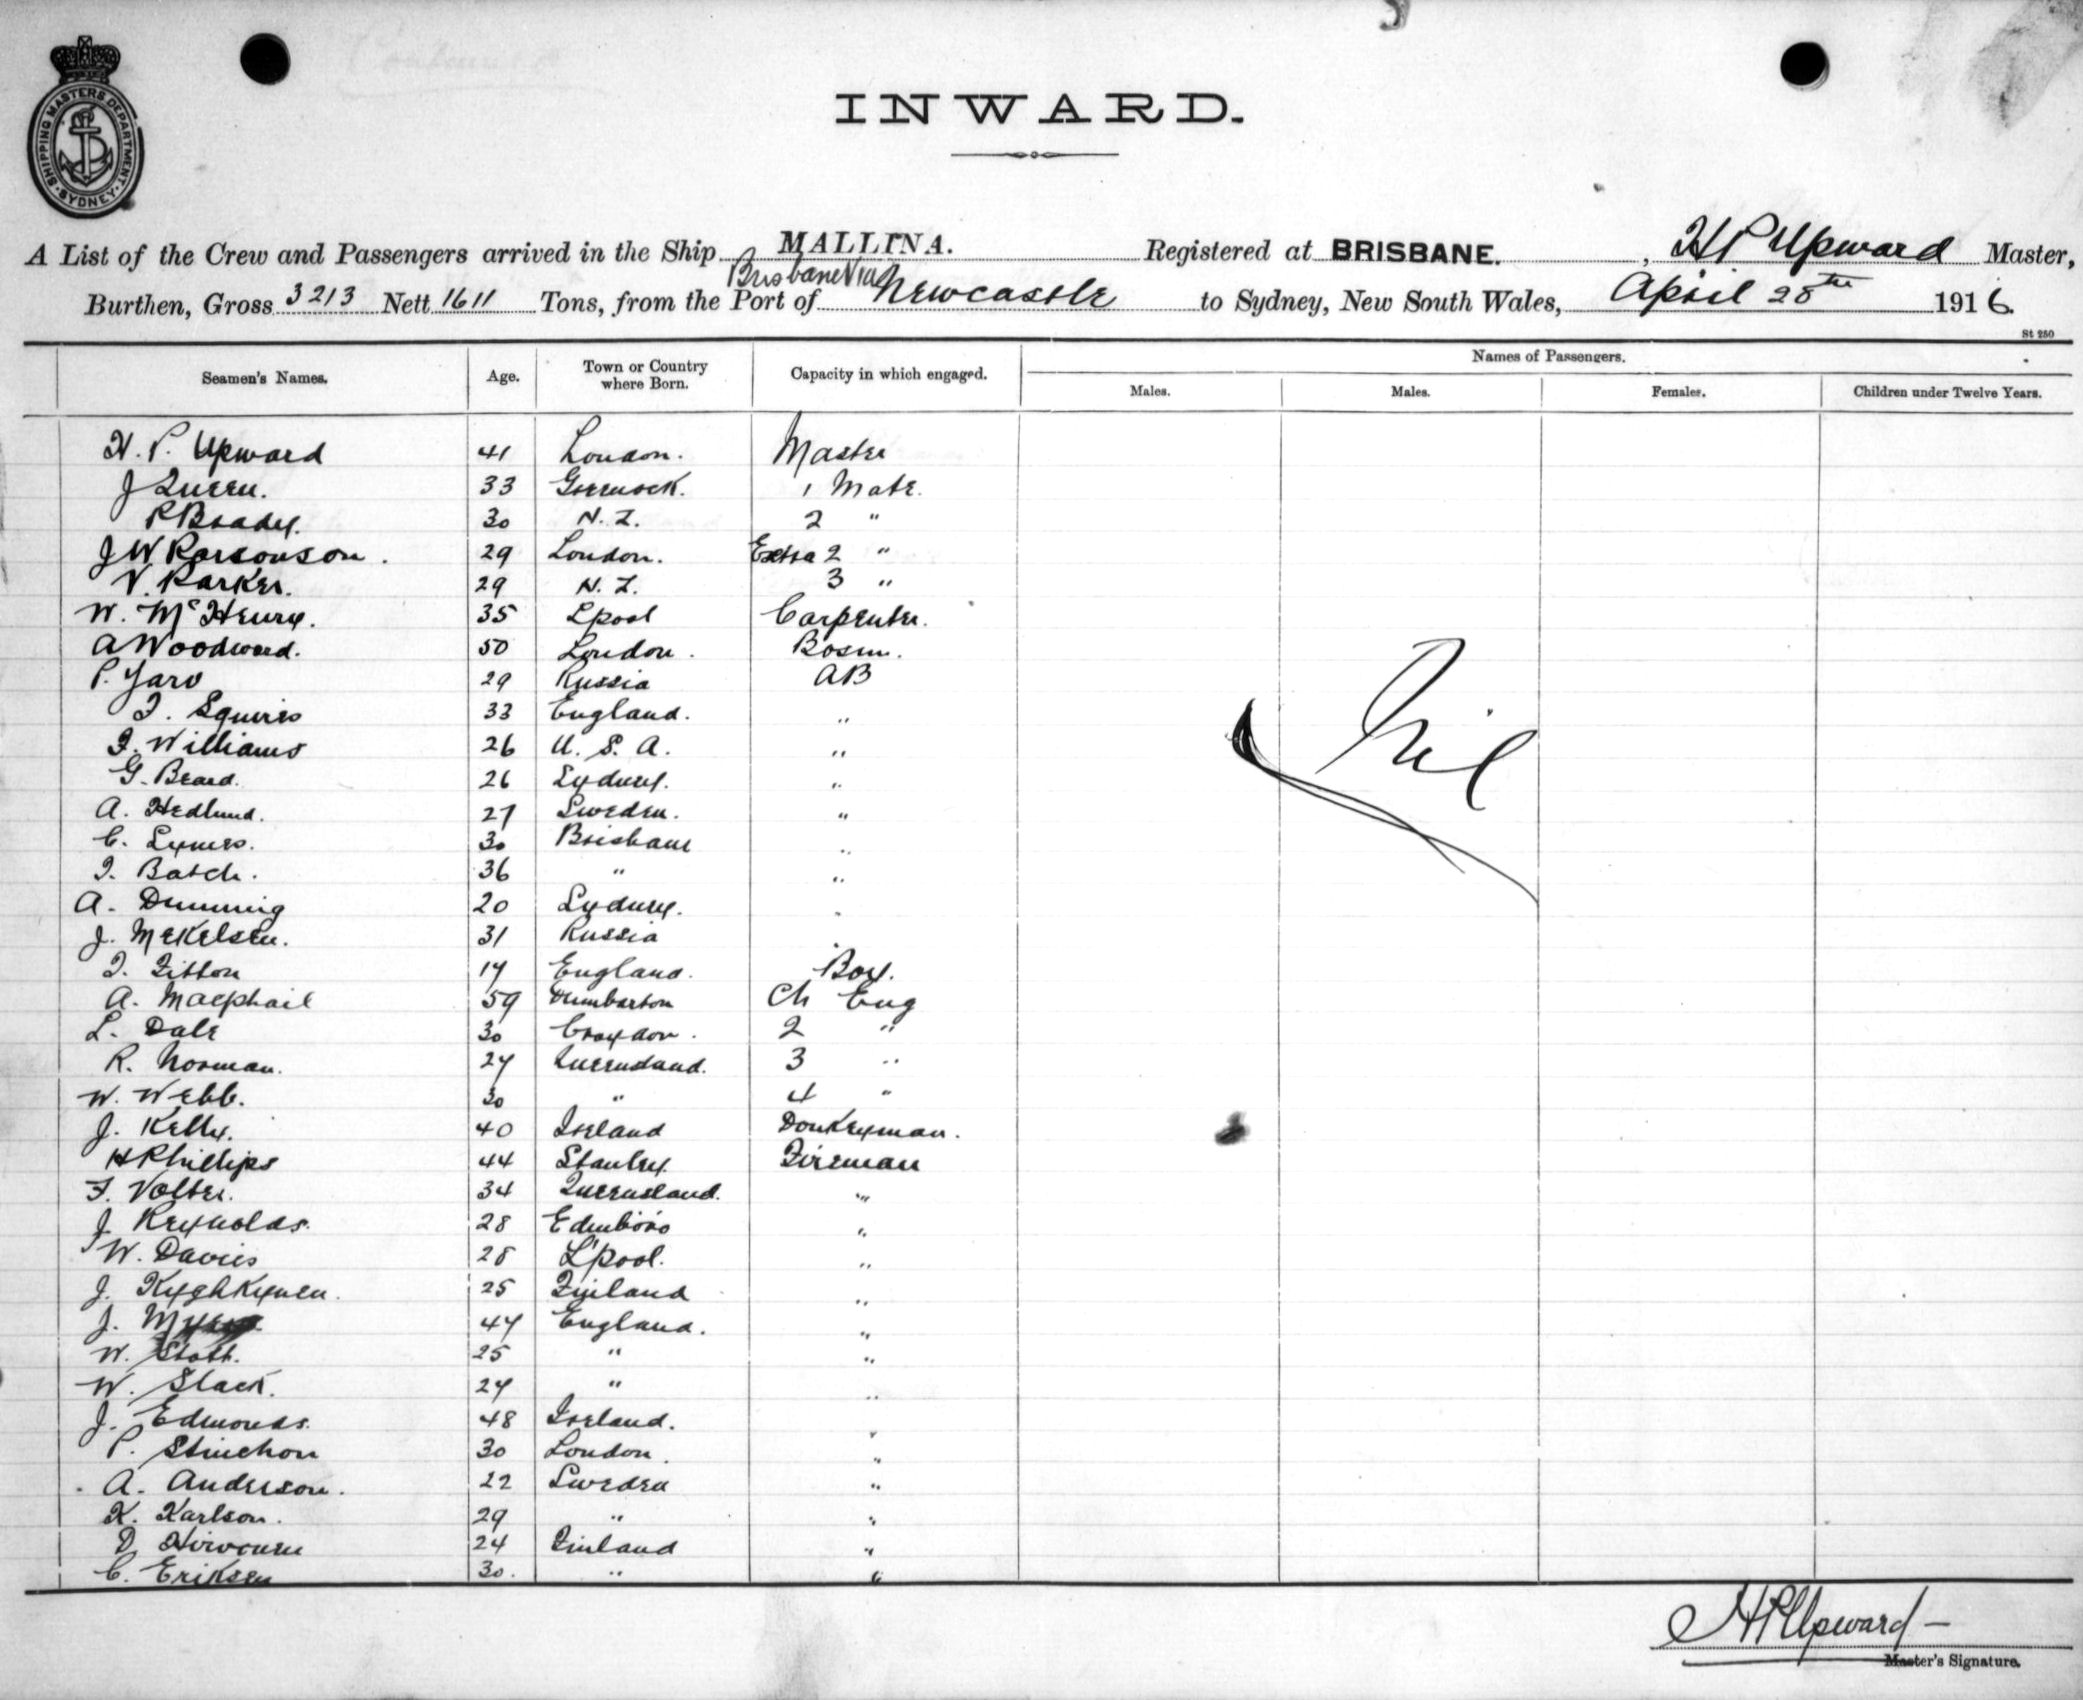 SHIPPING MASTERS DEPARTMENT
SYDNEY
INWARD.
A List of the Crew and Passengers arrived in the Ship MALLINA. Registered at BRISBANE. , H P Upward Master,
Brisbane Via
Burthen, Gross 3213 Nett 1611 Tons, from the Port of Newcastle to Sydney, New South Wales, April 28th 1916.
St 250
Seamen's Names. Age. Town or Country where Born. Capacity in which engaged. Names of Passengers.
Males. Males. Females. Children under Twelve Years.
H. P. Upward 41 London. Master
J Queen. 33 Greenock. 1 Mate.
P Brady. 30 N. Z. 2 "
J W Parsonson. 29 London. Extra 2 "
V. Parker. 29 N. Z. 3 "
W. McHenry. 35 Lpool Carpenter.
A Woodward. 50 London. Bosun.
P. Jarv 29 Russia AB
F. Squires 33 England. "
F. Williams 26 U. S. A. "
G. Beard. 26 Sydney. "
A. Hedlund. 27 Sweden. "
C. Symes. 30 Brisbane "
F. Batch. 36 " "
A. Dunning 20 Sydney. "
J. Mekelsen. 31 Russia "
F. Fitton 17 England. Boy.
A. Macphail 59 Dumbarton Ch Eng
L. Dale 30 Croydon. 2 "
R. Norman. 27 Queensland. 3 "
W. Webb. 30 " 4 "
J. Kelly. 40 Ireland Donkeyman.
H Phillips 44 Stanley. Fireman
F. Volter. 34 Queensland. "
J Reynolds. 28 Edinboro "
W. Davies 28 L'pool. "
J. Kyghkynen. 25 Finland "
J. Myers 47 England. "
W. Stott. 25 " "
W. Slack. 27 " "
J. Edmonds. 48 Ireland. "
P. Stinchon 30 London. "
A. Anderson. 22 Sweden "
K. Karlson. 29 " "
D. Hirvonen 24 Finland "
C. Eriksen 30. " "
Nil
H P Upward
Master's Signature.